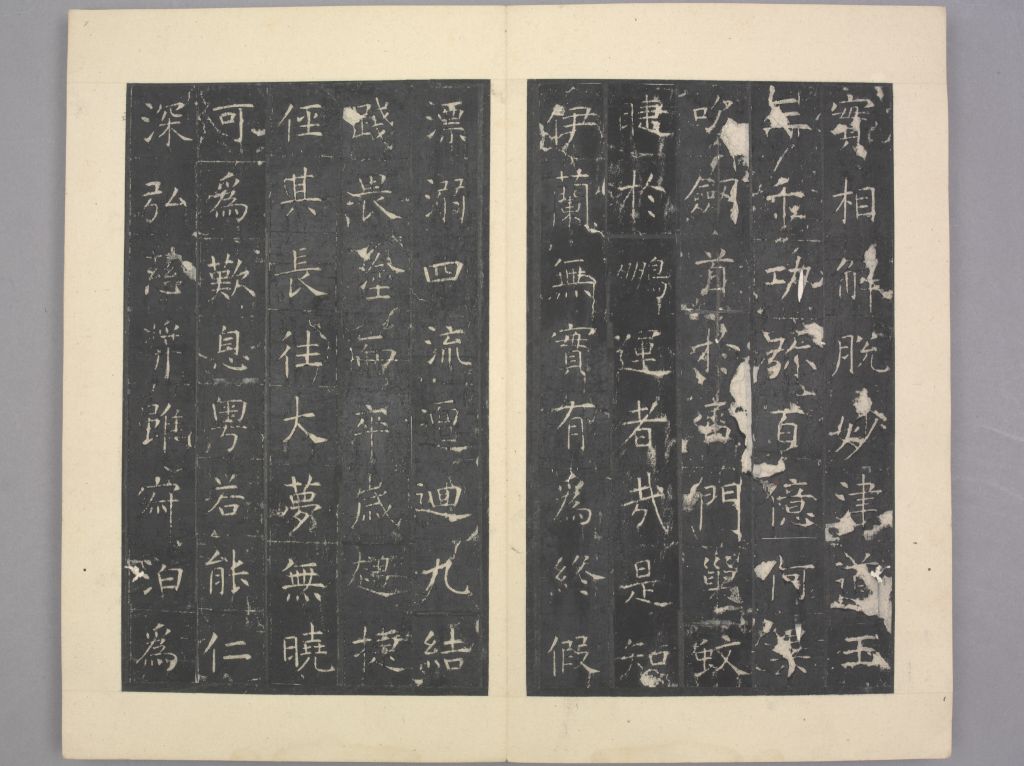 實相解脫妙津道王
三千功弥百億何異
吹劔首於雷門巢蚊
睫於鵬運者哉是知
伊蘭無實有為終假
漂溺四流邅迴九結
踐畏塗而卒歲趨捷
徑其長往大夢無曉
可為歎息粵若能仁
深弘慈濟雖寂泊為